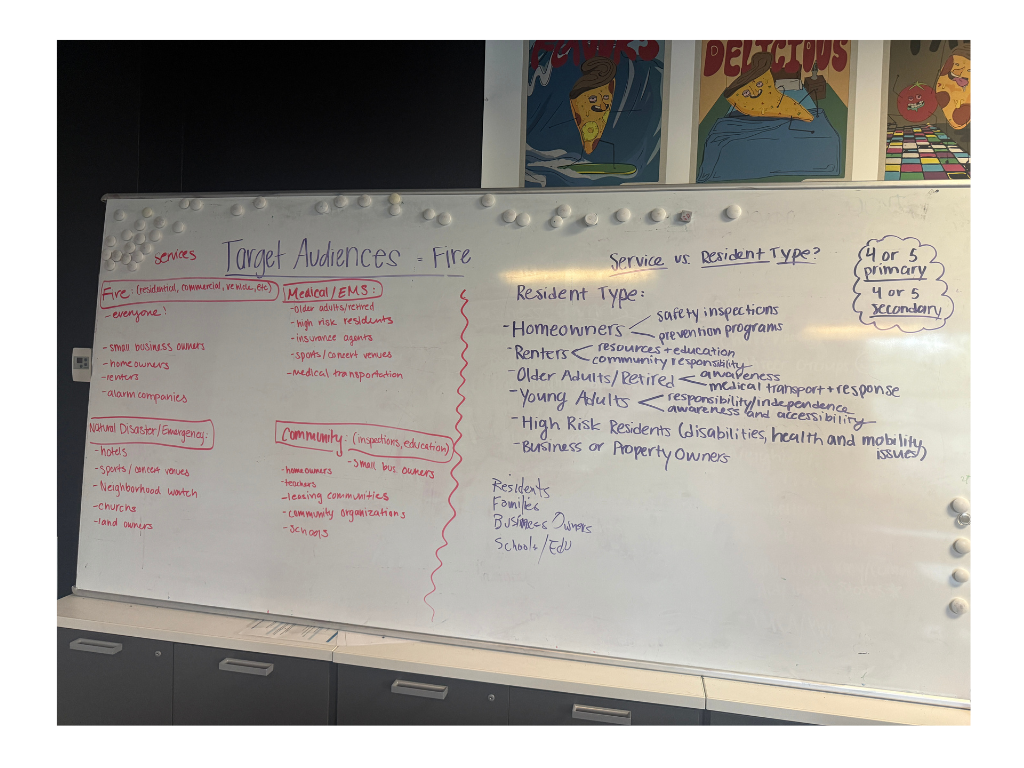 DELICIOUS
services
Target Audiences = Fire
Fire: (residential, commercial, vehicle, etc)
- everyone!
- small business owners
- homeowners
- renters
- alarm companies
Medical/EMS:
- older adults/retired
- high risk residents
- insurance agents
- sports/concert venues
- medical transportation
Natural Disaster/Emergency:
- hotels
- sports/concert venues
- Neighborhood watch
- churchs
- land owners
Community: (inspections, education)
- small bus owners
- homeowners
- teachers
- leasing communities
- community organizations
- schools
Service vs. Resident Type?
4 or 5
primary
4 or 5
secondary
Resident Type:
- Homeowners
safety inspections
prevention programs
- Renters
resources + education
community responsibility
- Older Adults/Retired
awareness
medical transport + response
- Young Adults
responsibility/independence
awareness and accessibility
- High Risk Residents (disabilities, health and mobility
issues)
- Business or Property Owners
Residents
Families
Business Owners
Schools/Edu